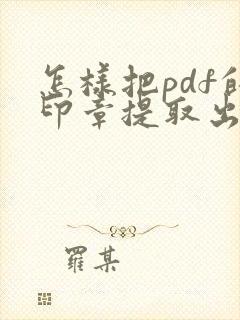 怎樣把pdf的
印章提取出
羅某